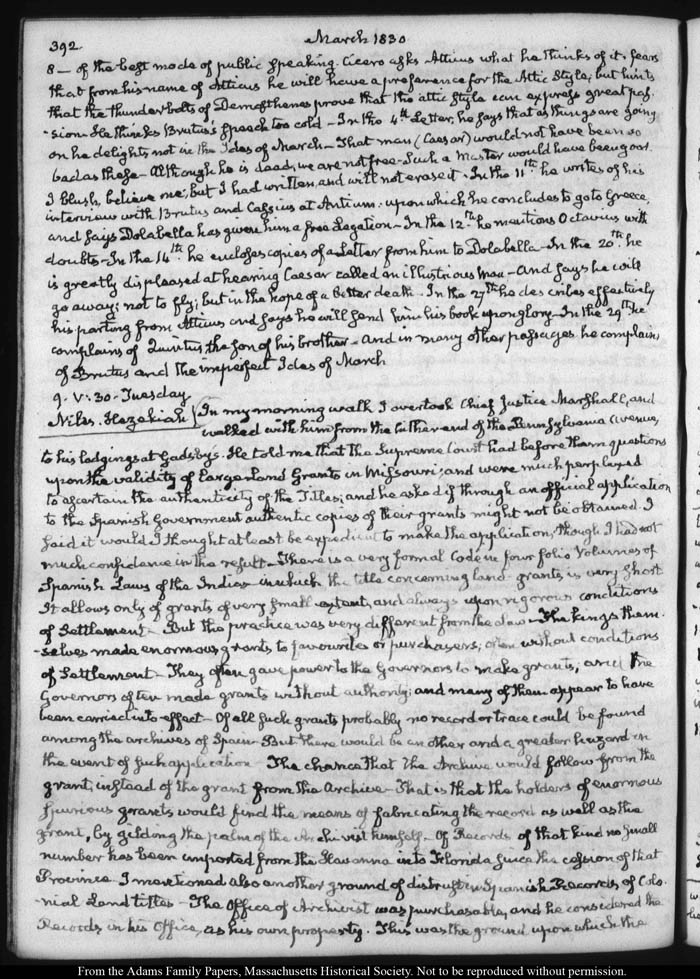 392
March 1830
8— of the best mode of public speaking. Cicero asks Atticus what he thinks of it. fears
that from his name of Atticus he will have a preference for the Attic Style, but hints
that the thunderbolts of Demosthenes prove that the attic Style can express great pas-
-sion. He thinks Brutus's Speech too cold — In the 4th Letter, he says that as things are going
on he delights not in the Ides of March — That man (Caesar) would not have been so
bad as these — Although he is dead, we are not free — Such a Master would have been good.
I blush, believe me; but I had written, and will not erase it. In the 11th he writes of his
interview with Brutus and Cassius at Antium: upon which he concludes to go to Greece,
and says Dolabella has given him a free Legation — In the 12th he mentions Octavius with
doubts — In the 14th he encloses copies of a Letter from him to Dolabella — In the 20th he
is greatly displeased at hearing Caesar called an illustrious Man — And says he will
go away; not to fly; but in the hope of a better death. In the 27th he describes effectively
his parting from Atticus and says he will send him his book upon glory — In the 29th he
complains of Quintus, the son of his brother — and in many other passages he complains
of Brutus and the imperfect Ides of March
9. V: 30. Tuesday
Niles. Hezekiah In my morning walk I overtook Chief Justice Marshall, and
walked with him from the hither end of the Pennsylvania Avenue,
to his lodgings at Gadsby's. He told me that the Supreme Court had before them questions
upon the validity of large Land Grants in Missouri; and were much perplexed
to ascertain the authenticity of the Titles; and he asked if through an official application
to the Spanish Government authentic copies of their grants might not be obtained. I
said it would I thought at least be expedient to make the application, though I had not
much confidence in the result — There is a very formal Code in four folio Volumes of
Spanish Laws of the Indies in which the title concerning land grants is very short
It allows only of grants of very small extent, and always upon rigorous conditions
of Settlement — But the practice was very different from the law — The Kings them-
-selves made enormous grants to favourites or purchasers; often without conditions
of Settlement — They often gave power to the Governors to make grants, and the
Governors often made grants without authority; and many of them appear to have
been carried into effect — Of all such grants probably no record or trace could be found
among the archives of Spain — But there would be another and a greater hazard in
the event of such application — The chance that the Archive would follow from the
grant, instead of the grant from the Archive — That is that the holders of enormous
spurious grants would find the means of fabricating the record as well as the
grant, by gilding the palm of the Archivist himself — Of Records of that kind no small
number has been imported from the Havanna into Florida since the cession of that
Province — I mentioned also another ground of distrust in Spanish Records of Colo-
-nial Land titles — The Office of Archivist was purchasable, and he considered the
Records in his Office, as his own property. This was the ground upon which the
From the Adams Family Papers, Massachusetts Historical Society. Not to be reproduced without permission.